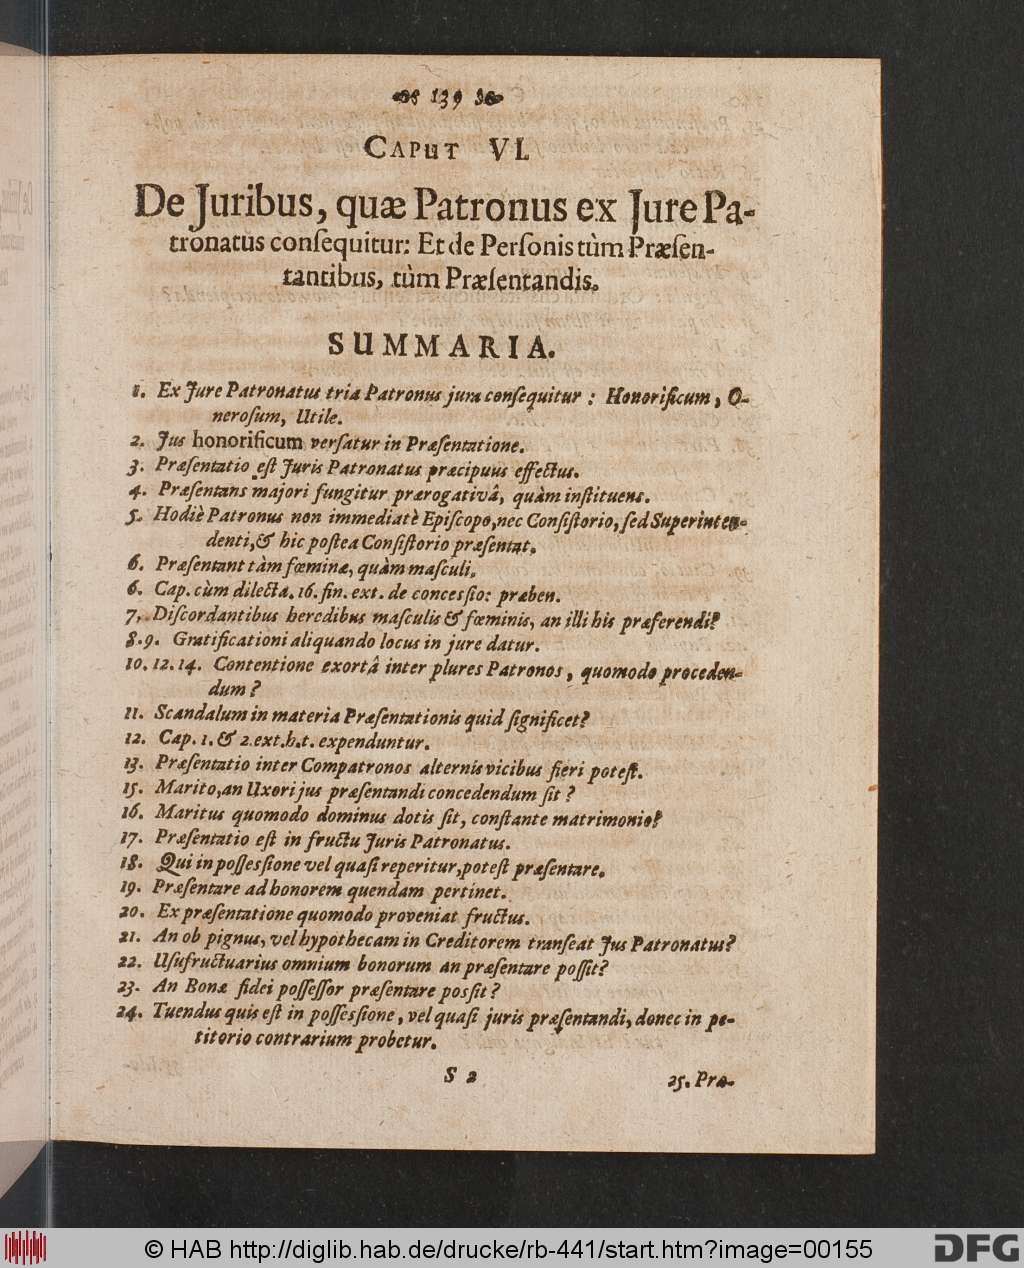 139
CAPUT VI.
De Juribus, quæ Patronus ex Jure Pa-
tronatus conſequitur: Et de Perſonis tùm Præſen-
tantibus, tùm Præſentandis.
SUMMARIA.
1. Ex Jure Patronatus tria Patronus jura conſequitur : Honorificum, O-
neroſum, Utile.
2. Jus honorificum verſatur in Præſentatione.
3. Præſentatio eſt Juris Patronatus præcipuus effectus.
4. Præſentans majori fungitur prærogativâ, quàm inſtituens.
5. Hodiè Patronus non immediatè Epiſcopo, nec Conſiſtorio, ſed Superinten-
denti, & hic poſtea Conſiſtorio præſentat.
6. Præſentant tàm fœminæ, quàm maſculi.
6. Cap. cùm dilecta. 16. fin. ext. de conceſſio: præben.
7. Diſcordantibus heredibus maſculis & fœminis, an illi his præferendi?
8.9. Gratificationi aliquando locus in jure datur.
10. 12. 14. Contentione exortâ inter plures Patronos, quomodo proceden-
dum?
11. Scandalum in materia Præſentationis quid ſignificet?
12. Cap. 1. & 2. ext. h. t. expenduntur.
13. Præſentatio inter Compatronos alternis vicibus fieri poteſt.
15. Marito, an Uxori jus præſentandi concedendum ſit?
16. Maritus quomodo dominus dotis ſit, conſtante matrimonio?
17. Præſentatio eſt in fructu Juris Patronatus.
18. Qui in poſſeſſione vel quaſi reperitur, poteſt præſentare.
19. Præſentare ad honorem quendam pertinet.
20. Ex præſentatione quomodo proveniat fructus.
21. An ob pignus, vel hypothecam in Creditorem tranſeat Jus Patronatus?
22. Uſufructuarius omnium bonorum an præſentare poſſit?
23. An Bonæ fidei poſſeſſor præſentare posſit?
24. Tuendus quis eſt in poſſeſſione, vel quaſi juris præſentandi, donec in pe-
titorio contrarium probetur.
S 2
25. Præ-
© HAB http://diglib.hab.de/drucke/rb-441/start.htm?image=00155
DFG